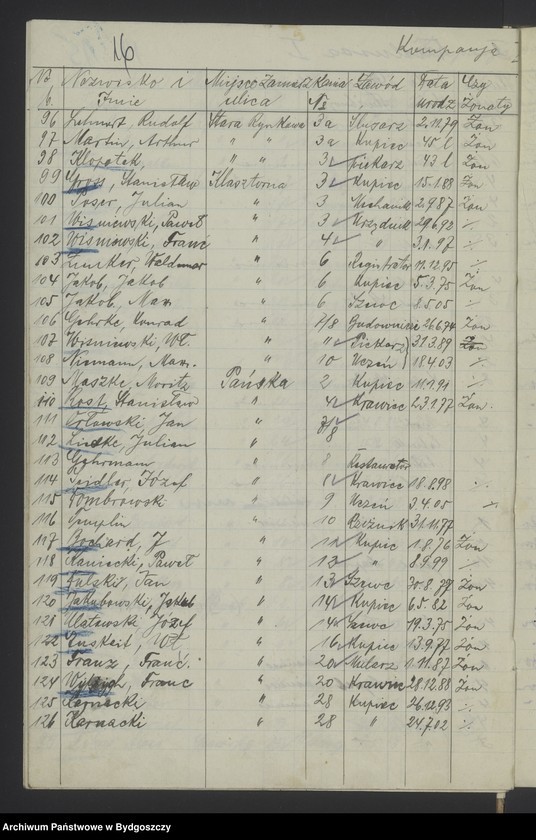 16
Kompanja
No Nazwisko i Miejsce Zamiesz Kamia Zawód Data Czy
Imie ulica No urodz Żonaty
96 Lehnert, Rudolf Stara Rynkowa 3a Ślusarz 2.11.79 Żon
97 Martin, Arthur " " 3a Kupiec Żon
98 Kłopotek, " " 3 piekarz 43 l. Żon
99 Gross, Stanisław Klasztorna 3 Kupiec 15.1.88 Żon
100 Poser, Julian " 3 Mechanik 2.9.87 Żon
101 Wiśniewski, Paweł " 3 Urzędnik 29.6.92 %
102 Wiśniewski, Franc " 4 " 3.1.97 %
103 Waldemar " 6 Registrator 11.12.95 %
104 Jakob, Jakob " 6 Kupiec 5.3.75 Żon
105 Jakob, Max " 6 Szewc 1.5.05 %
106 Gehrke, Konrad " 7/8 Budowniczy 26.6.74 Żon
107 Wiśniewski, Wł. " " Piekarz 27.3.89 Żon
108 Niemann, Max. " 10 Uczeń 18.4.03 %
109 Maszke, Moritz Pańska 2 Kupiec 11.1.91 %
110 Rost, Stanisław " 4 Krawiec 23.1.77 Żon.
111 Orłowski, Jan " 7/8
112 Julian "
113 Gehrmann " 8 Restaurator
114 Seidler, Józef " 8 Krawiec 18.8.98 %
115 Dombrowski " 9 Uczeń 3.4.05 %
116 Templin " 10 Rzeźnik 31.11.77
117 J " 12 Kupiec 1.8.76 Żon
118 Kaniecki, Paweł " 13 " 8.9.99 %
119 Jan " 13 Szewc 30.8.77 Żon
120 Jakubowski, Jakob " 14 Kupiec 6.5.82 Żon
121 Ulatowski Józef " 14 Szewc 19.3.75 Żon
122 Wł. " 16 Kupiec 13.9.77 Żon
123 Franz, Franc. " 20 Malarz 1.11.87 Żon
124 Franc " 20 Krawiec 28.12.88 Żon
125 Karnacki " 28 Kupiec 26.12.93 %
126 Karnacki " 28 " 24.7.02 %
Archiwum Państwowe w Bydgoszczy